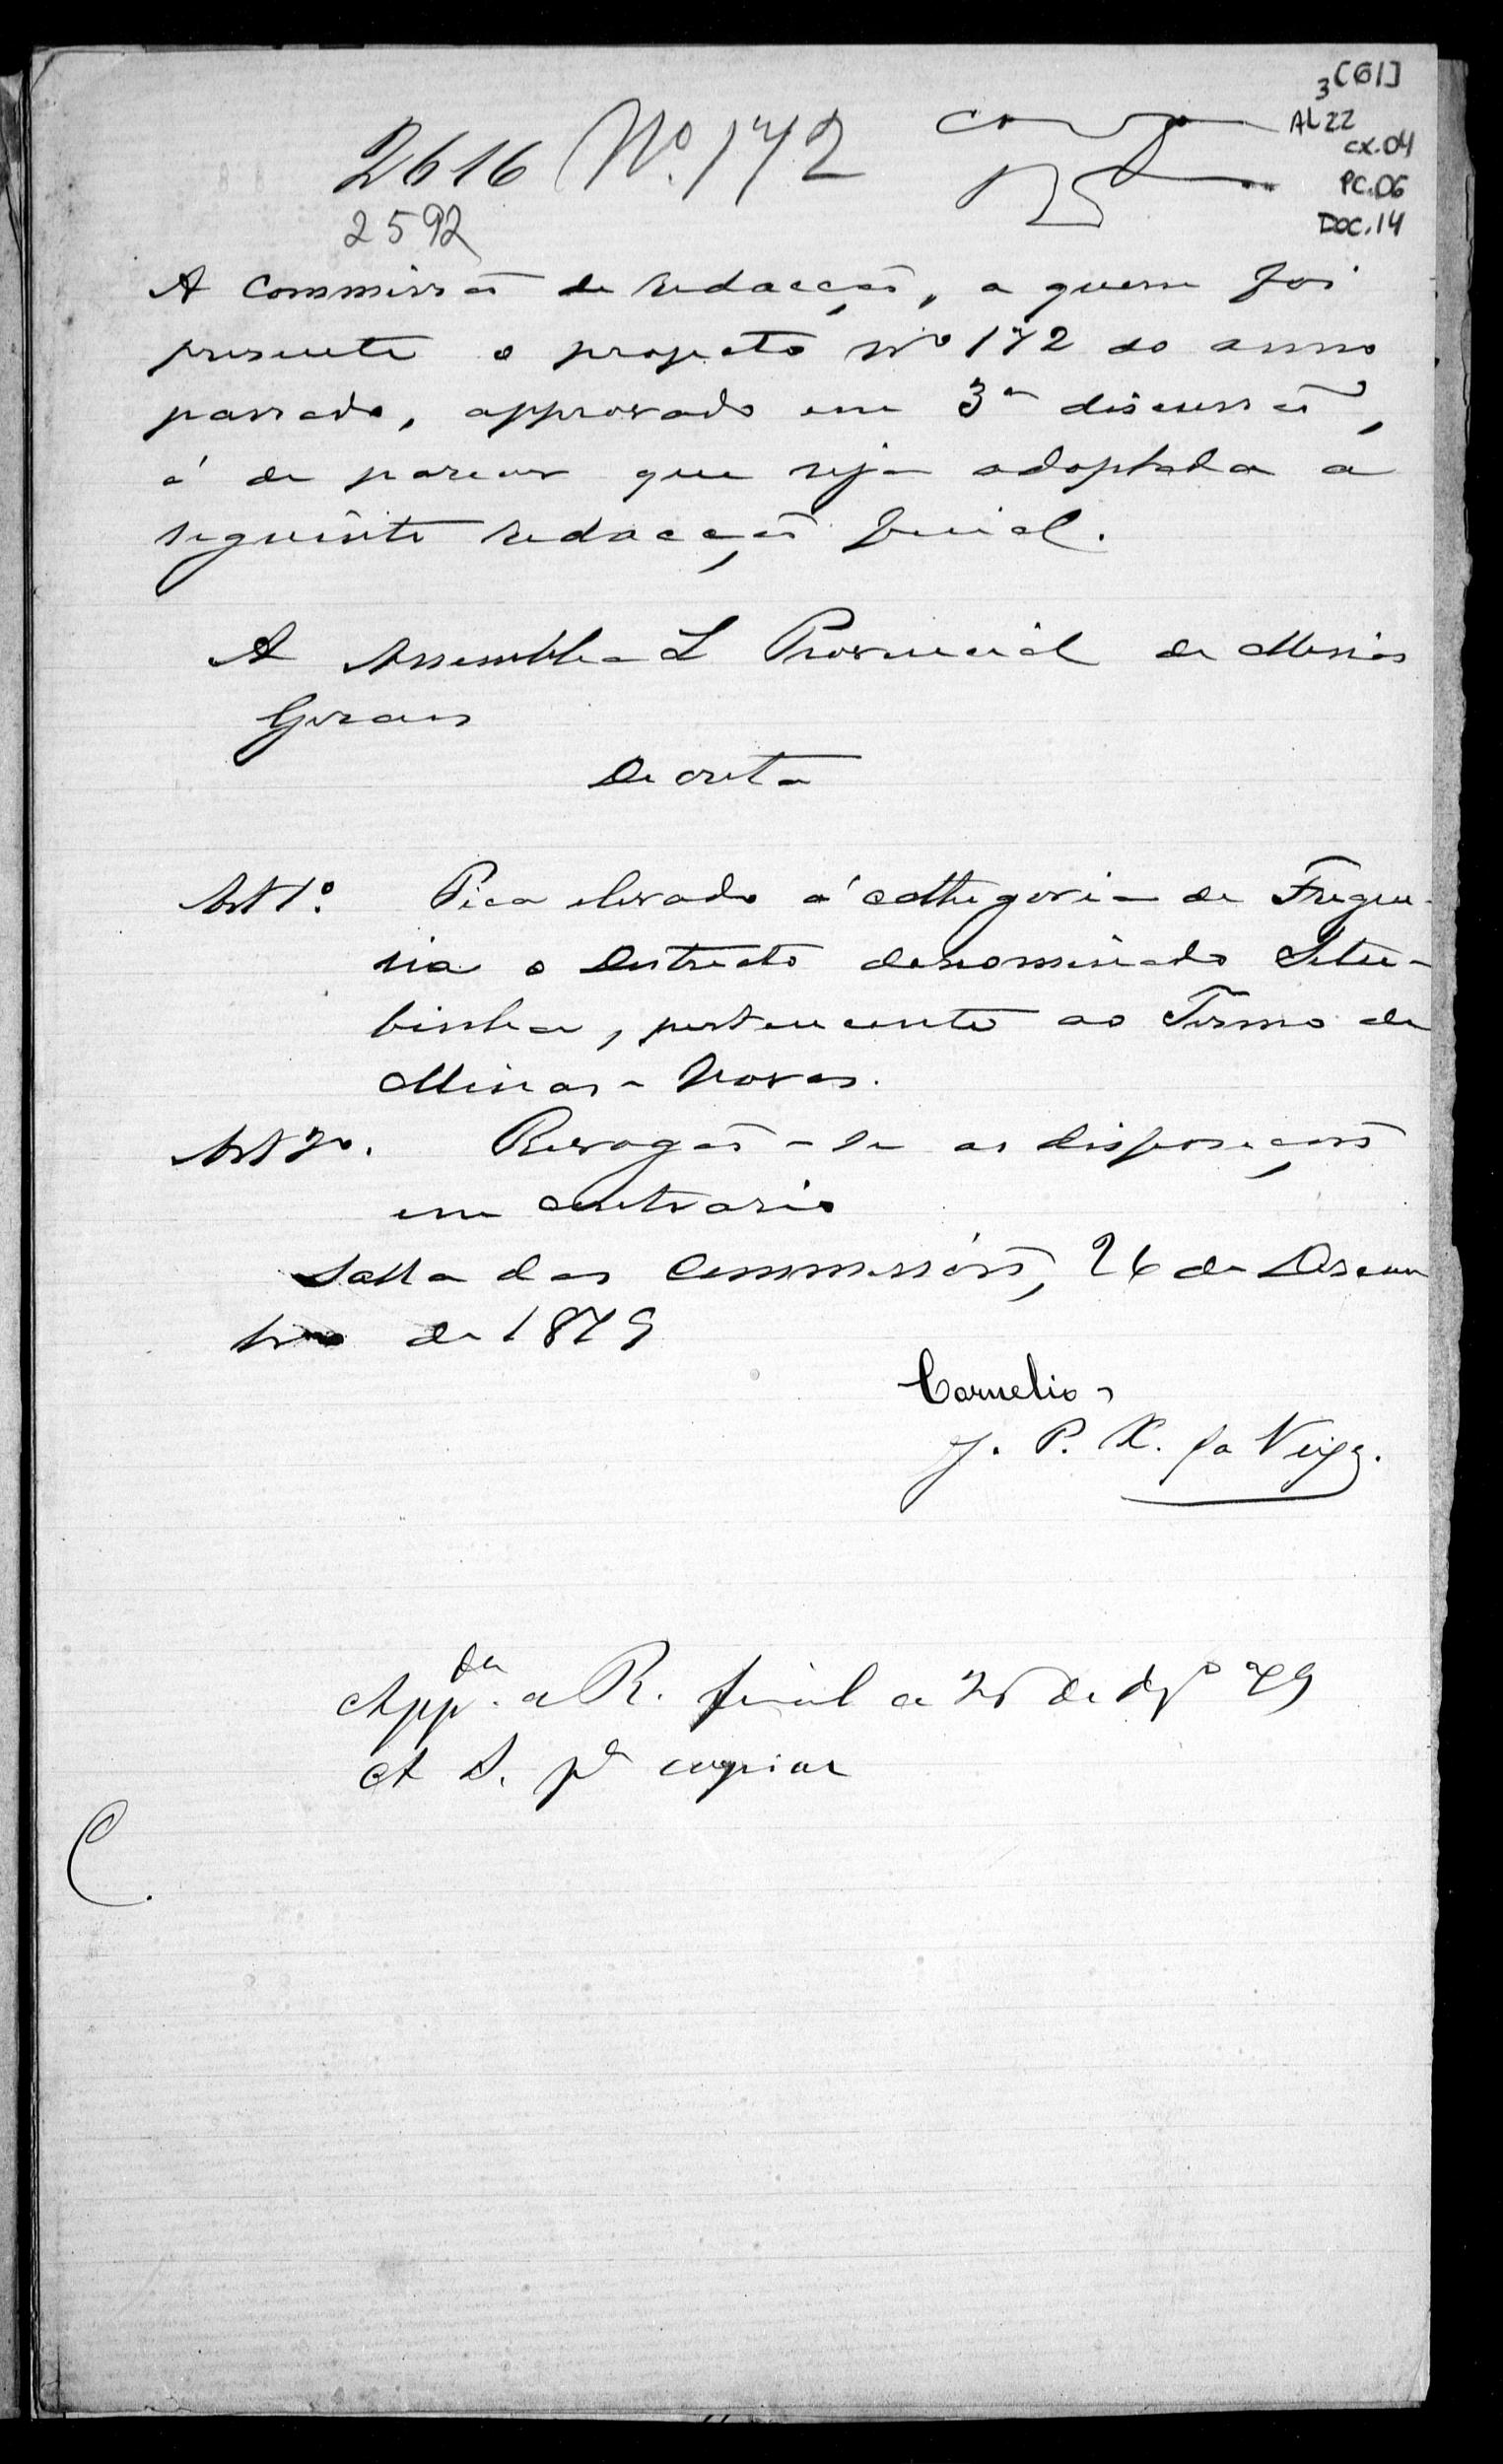 3 [01]
AL 22
CX.04
PC.06
DOC.14
2616 Nº 172
2592
A Commissão de Redacção, a quem foi
presente o projecto nº 172 do anno
passado, approvado em 3ª discussão,
é de parecer que seja adoptada a
seguinte redacção final.
A Assemblea L Provincial de Minas
Geraes
Decreta
Art 1º. Fica elevado á cathegoria de Fregue-
sia o Districto denominado Setu-
binha, pertencente ao Termo de
Minas-Novas.
Art 2º. Revogão-se as disposições
em contrario
Salla das Commissões, 26 de Dezem
bro de 1879
Cornelio
J. P. X. da Veiga.
Appda. a R. final a de dzº 79
A S. pª copiar
C.